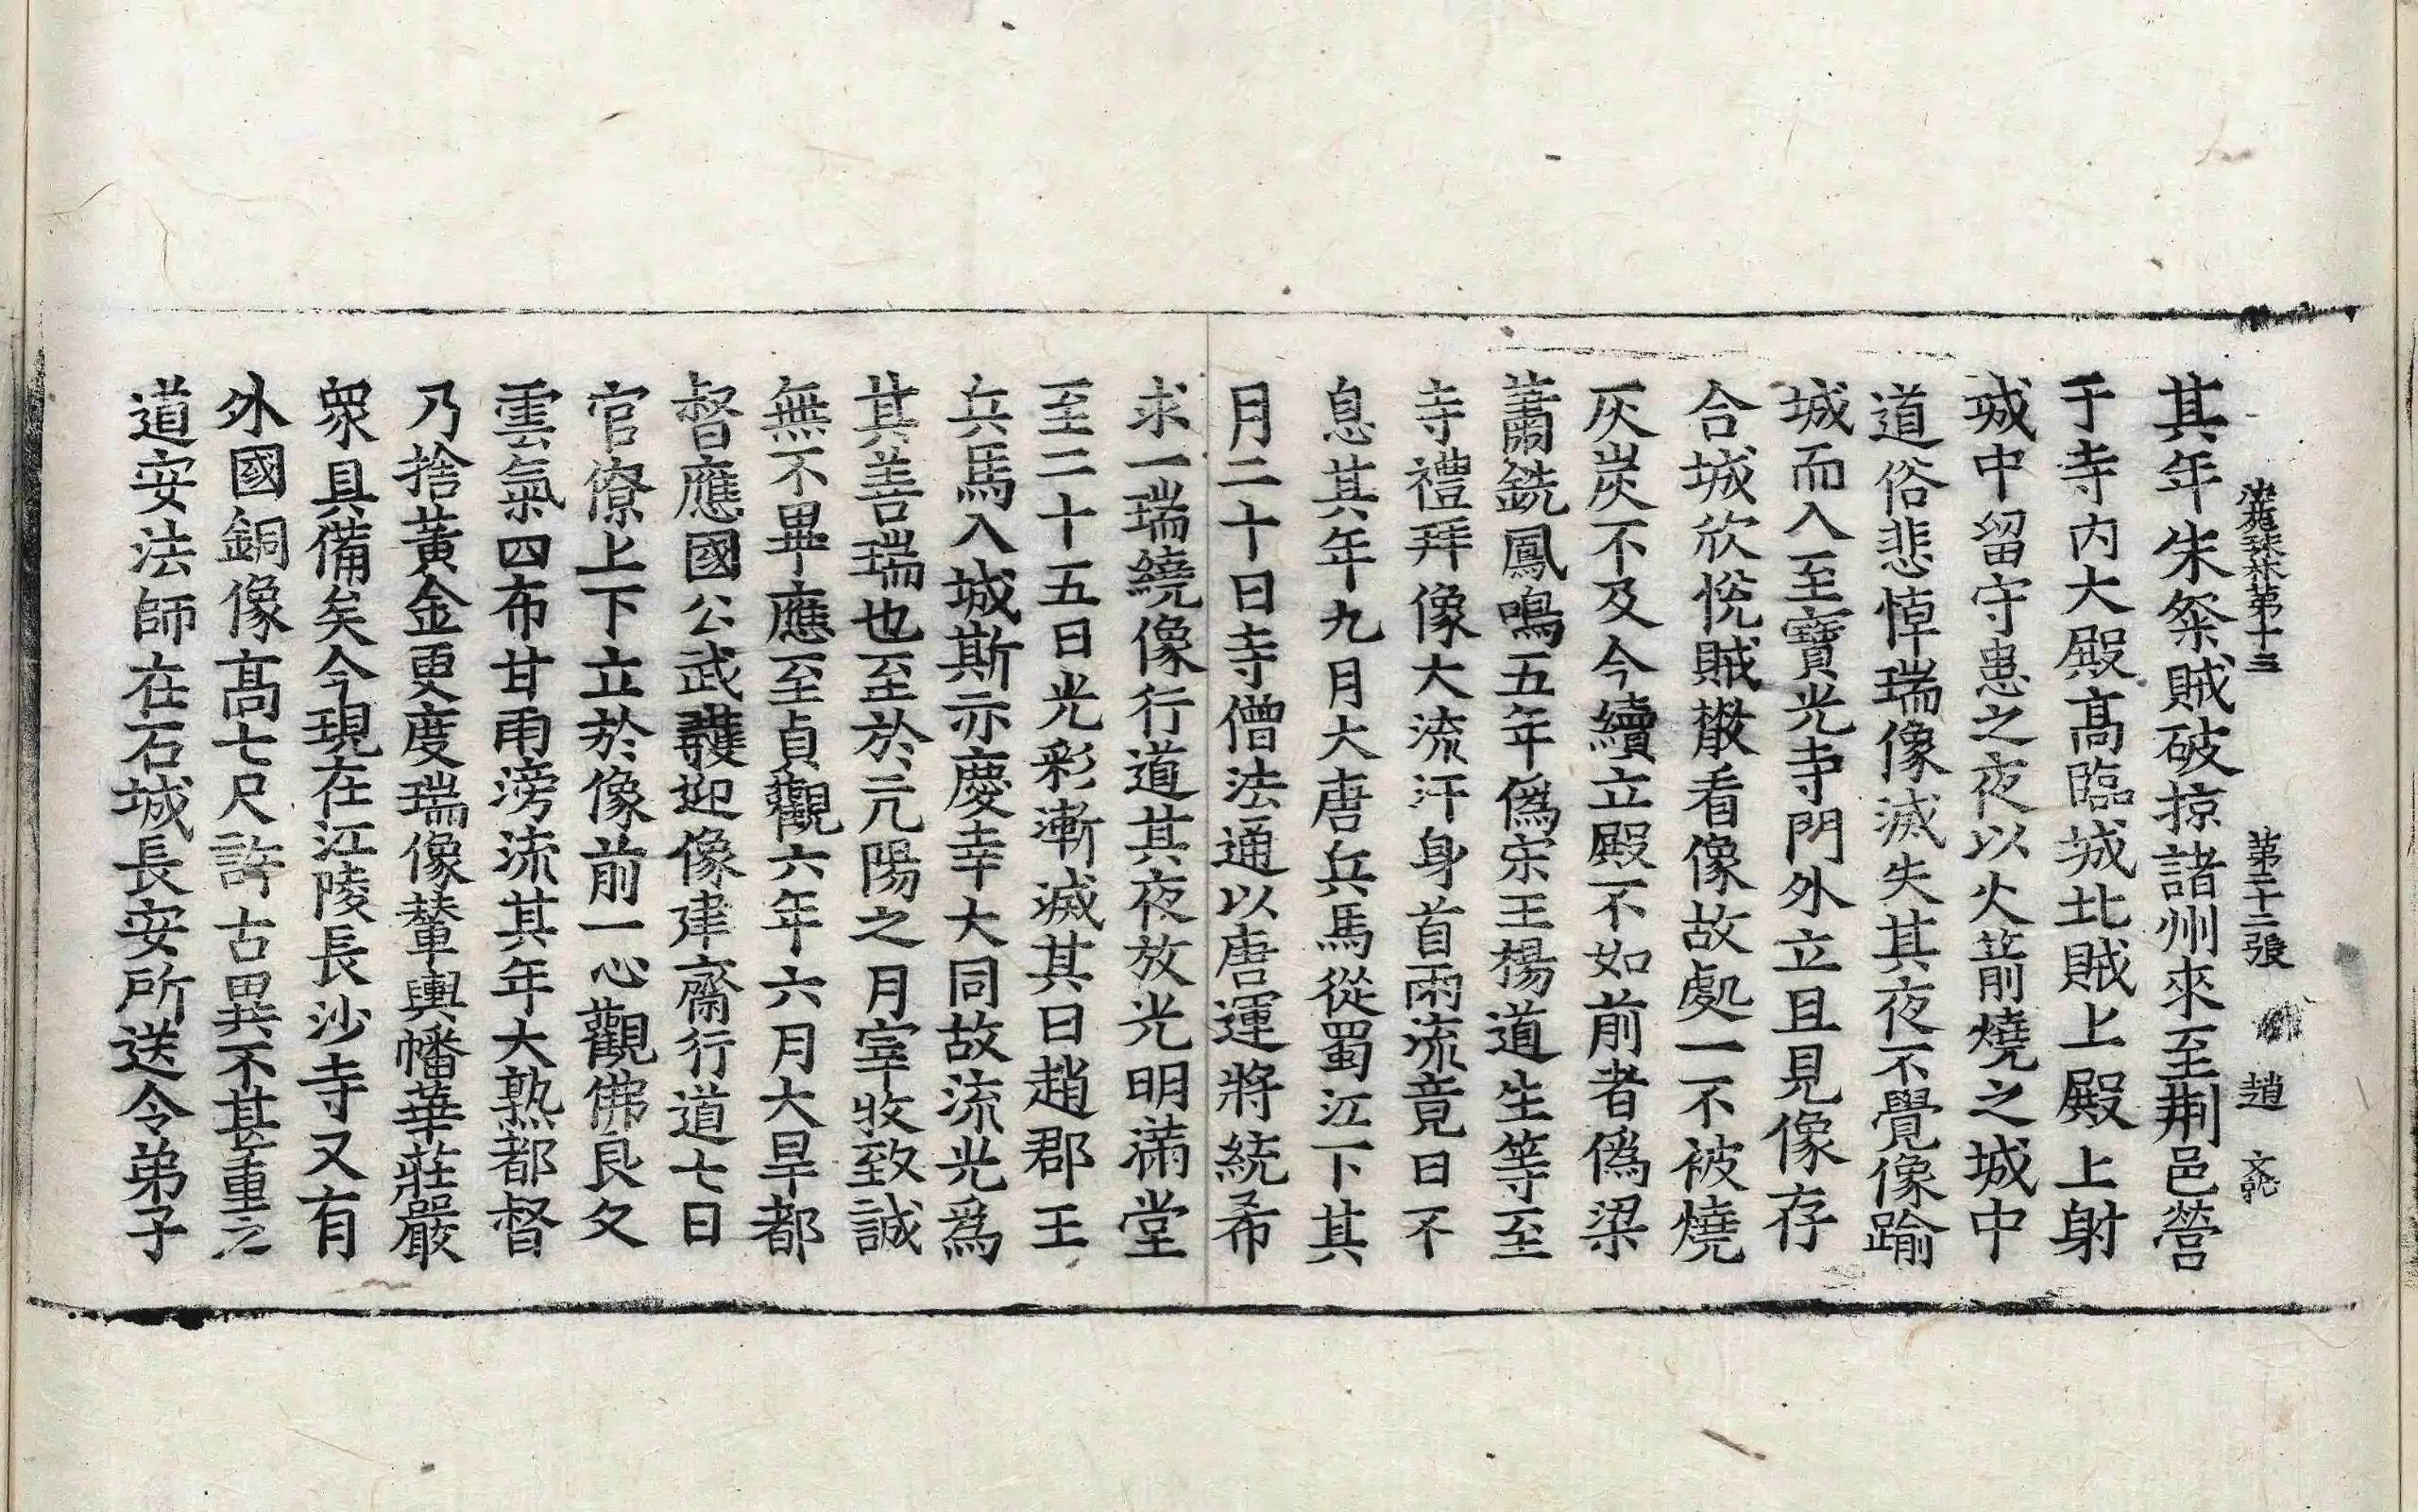 其年朱粲賊破掠諸州來至荆邑營
于寺内大殿髙臨城北賊上殿上射
城中留守患之夜以火箭燒之城中
道俗悲悼瑞像滅失其夜不覺像踰
城而入至寶光寺門外立且見像存
合城欣恱賊散看像故處一不被燒
灰炭不及今續立殿不如前者僞梁
蕭銑鳳鳴五年僞宋王楊道生等至
寺禮拜像大流汗身首雨流竟日不
息其年九月大唐兵馬從蜀江下其
月二十日寺僧法通以唐運將統希
求一瑞繞像行道其夜放光明滿堂
至二十五日光彩漸滅其日趙郡王
兵馬入城斯亦慶幸大同故流光爲
其善瑞也至於亢陽之月宰牧致誠
無不畢應至貞觀六年六月大旱都
督應國公武護迎像建齋行道七日
官僚上下立於像前一心觀佛良久
雲氣四布甘雨滂流其年大熟都督
乃捨黄金更度瑞像輦輿幡華莊嚴
衆具備矣今現在江陵長沙寺又有
外國銅像髙七尺許古異不甚重之
道安法師在石城長安所送令弟子
珠林第十三 第二十二張 趙